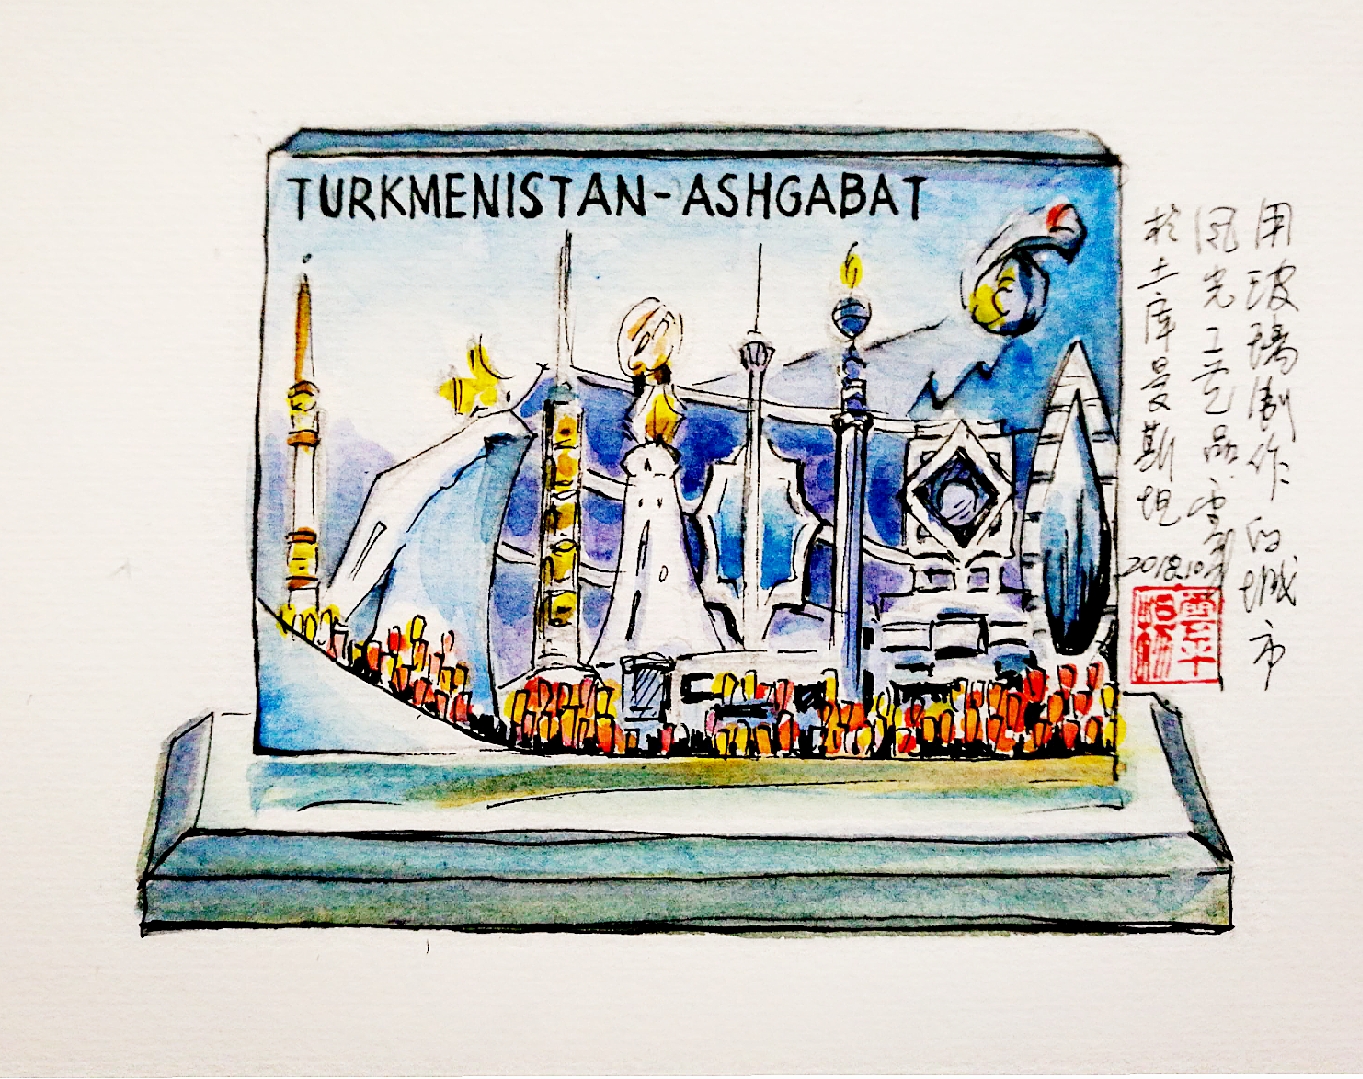 TURKMENISTAN-ASHGABAT
用玻璃制作 白城市
风光工艺品.雪平
於土库曼斯坦
2018.10.